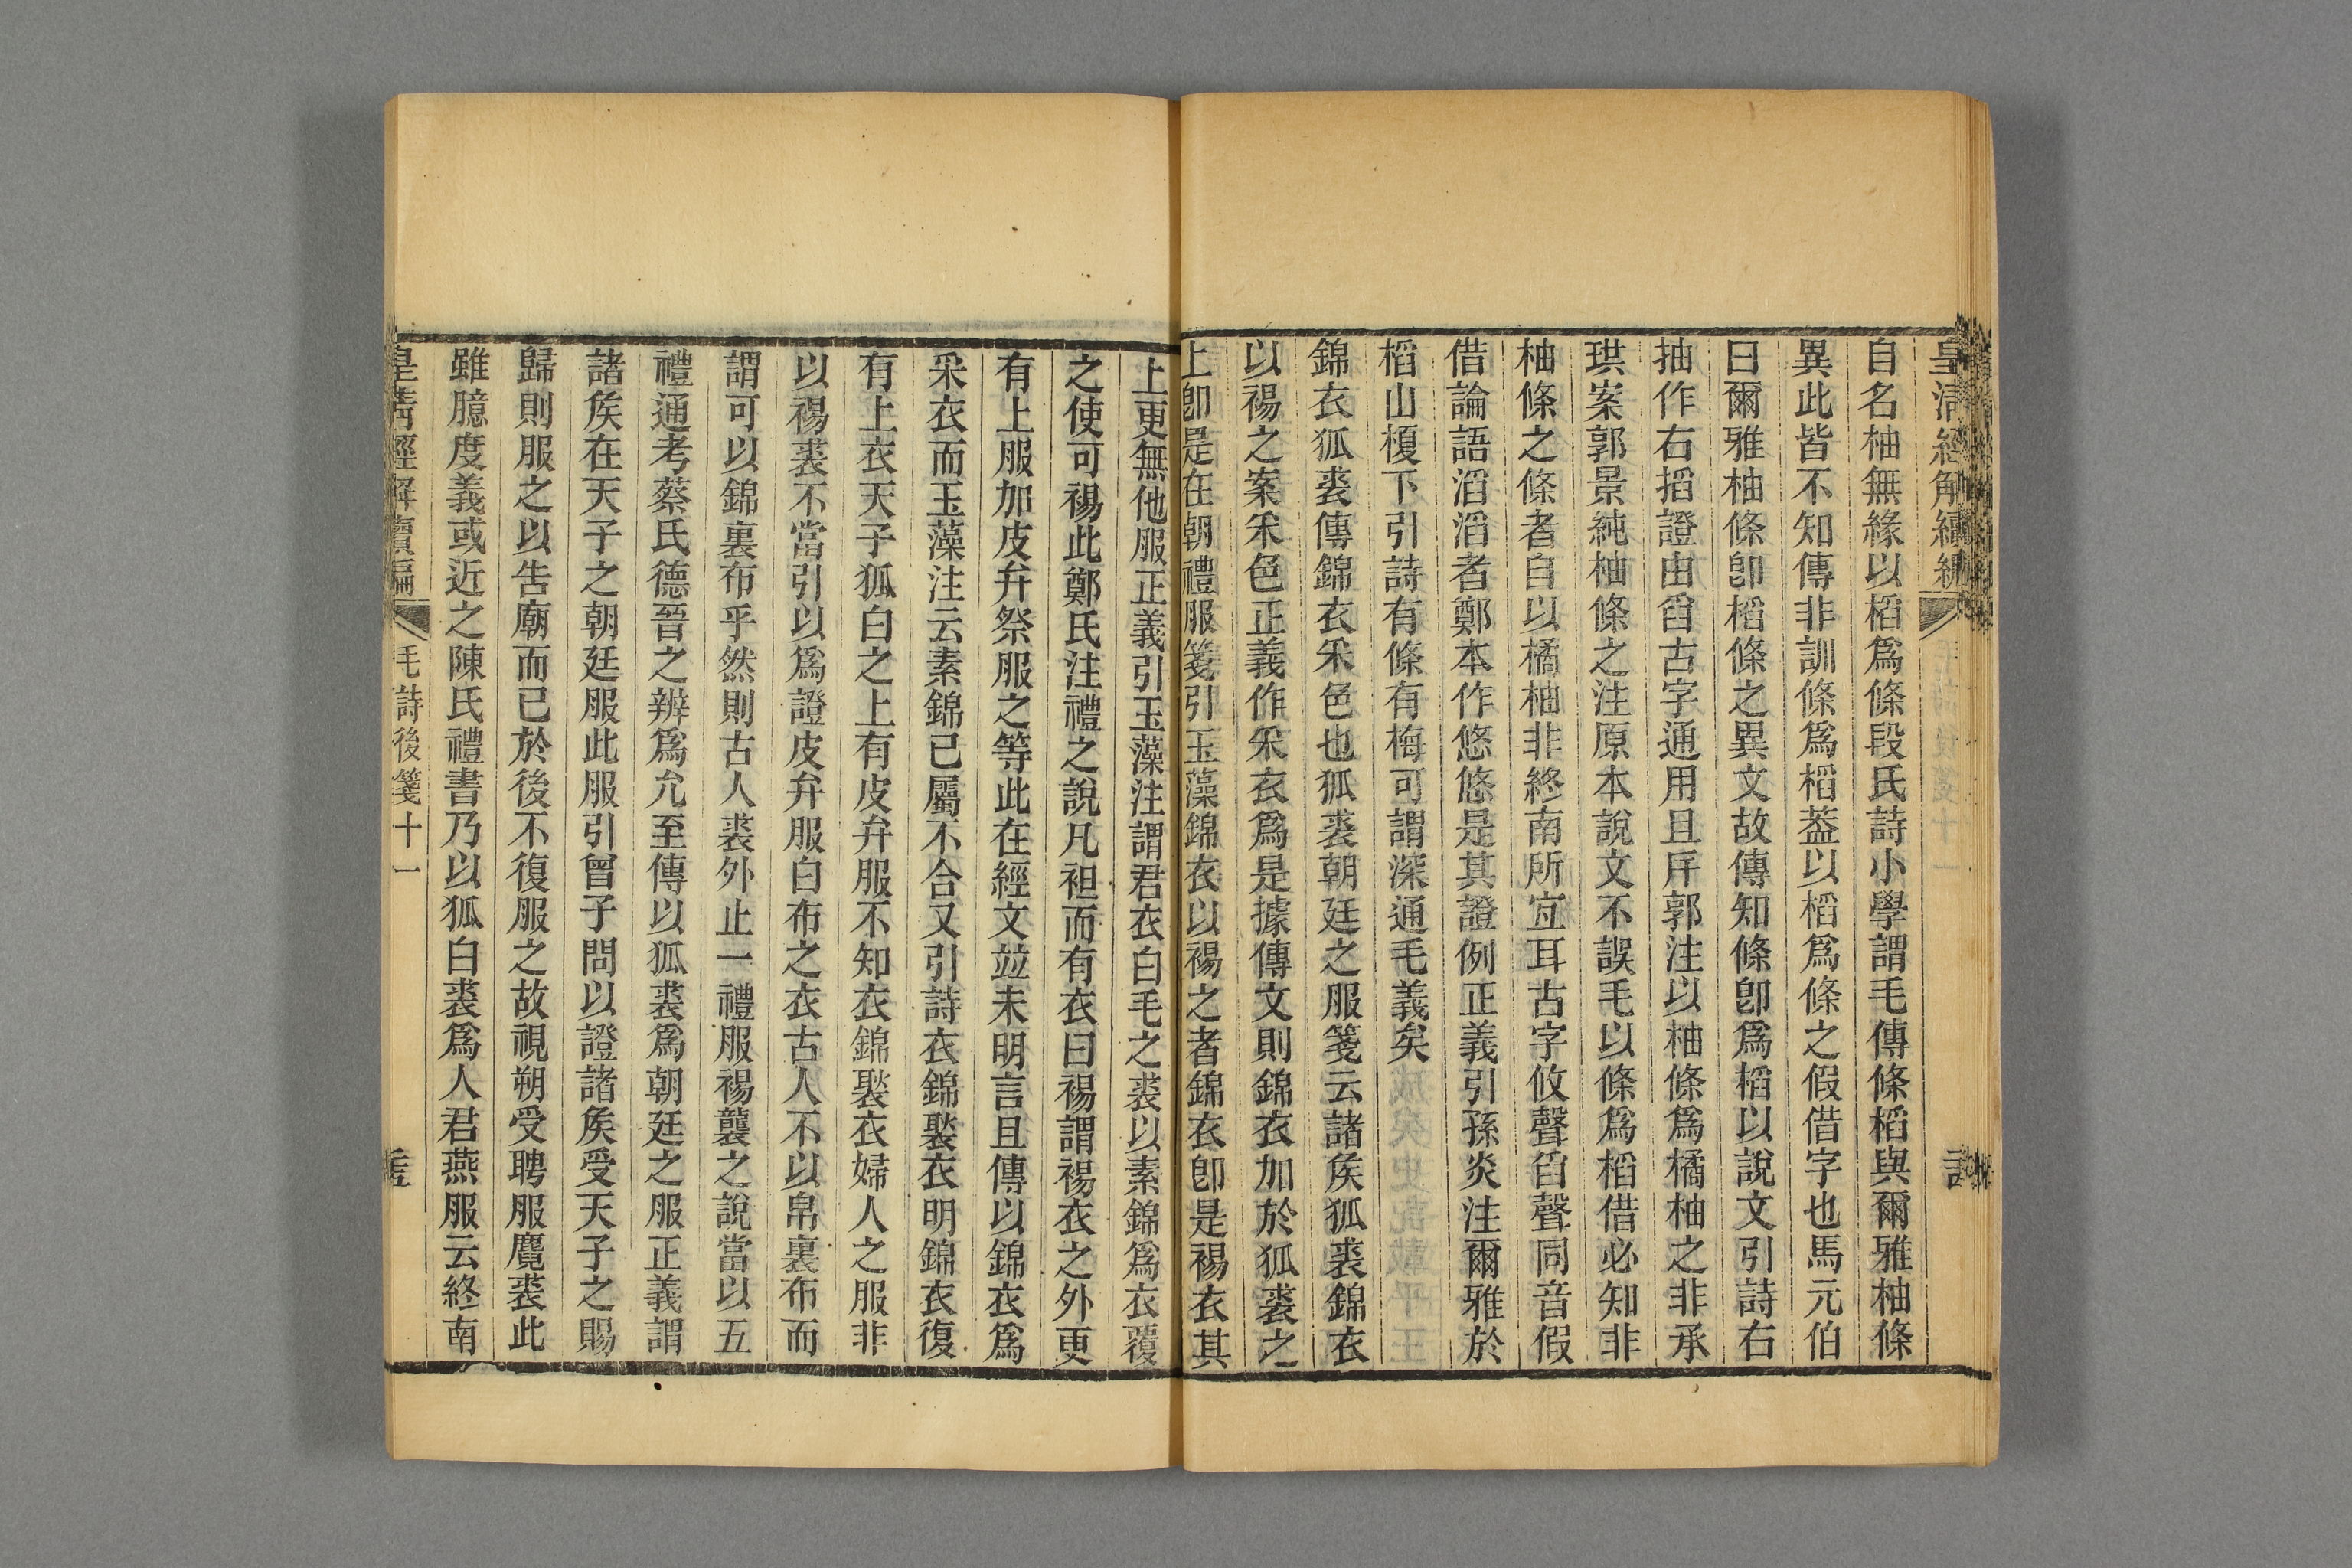 皇清經解續編
自名柚無緣以槄爲條段氏詩小學謂毛傳條槄與爾雅柚條
異此皆不知傳非訓條爲槄葢以槄爲條之假借字也馬元伯
曰爾雅柚條卽槄條之異文故傳知條卽爲槄以說文引詩右
抽作右搯證由舀古字通用且斥郭注以柚條爲橘柚之非承
珙案郭景純柚條之注原本說文不誤毛以條爲槄借必知非
柚條之條者自以橘柚非終南所宜耳古字攸聲舀聲同音假
借論語滔滔者鄭本作悠悠是其證例正義引孫炎注爾雅於
槄山榎下引詩有條有梅可謂深通毛義矣
錦衣狐裘傳錦衣釆色也狐裘朝廷之服箋云諸矦狐裘錦衣
以裼之案釆色正義作釆衣爲是據傳文則錦衣加於狐裘之
上卽是在朝禮服箋引玉藻錦衣以裼之者錦衣卽是裼衣其
上更無他服正義引玉藻注謂君衣白毛之裘以素錦爲衣覆
之使可裼此鄭氏注禮之說凡袒而有衣曰裼謂裼衣之外更
有上服加皮弁祭服之等此在經文竝未明言且傳以錦衣爲
采衣而玉藻注云素錦已屬不合又引詩衣錦褧衣明錦衣復
有上衣天子狐白之上有皮弁服不知衣錦褧衣婦人之服非
以裼裘不當引以爲證皮弁服白布之衣古人不以帛裏布而
謂可以錦裏布乎然則古人裘外止一禮服裼襲之說當以五
禮通考蔡氏德晉之辨爲允至傳以狐裘爲朝廷之服正義謂
諸矦在天子之朝廷服此服引曾子問以證諸矦受天子之賜
歸則服之以吿廟而已於後不復服之故視朔受聘服麑裘此
雖臆度義或近之陳氏禮書乃以狐白裘爲人君燕服云終南
皇清經解續編 毛詩後箋十一